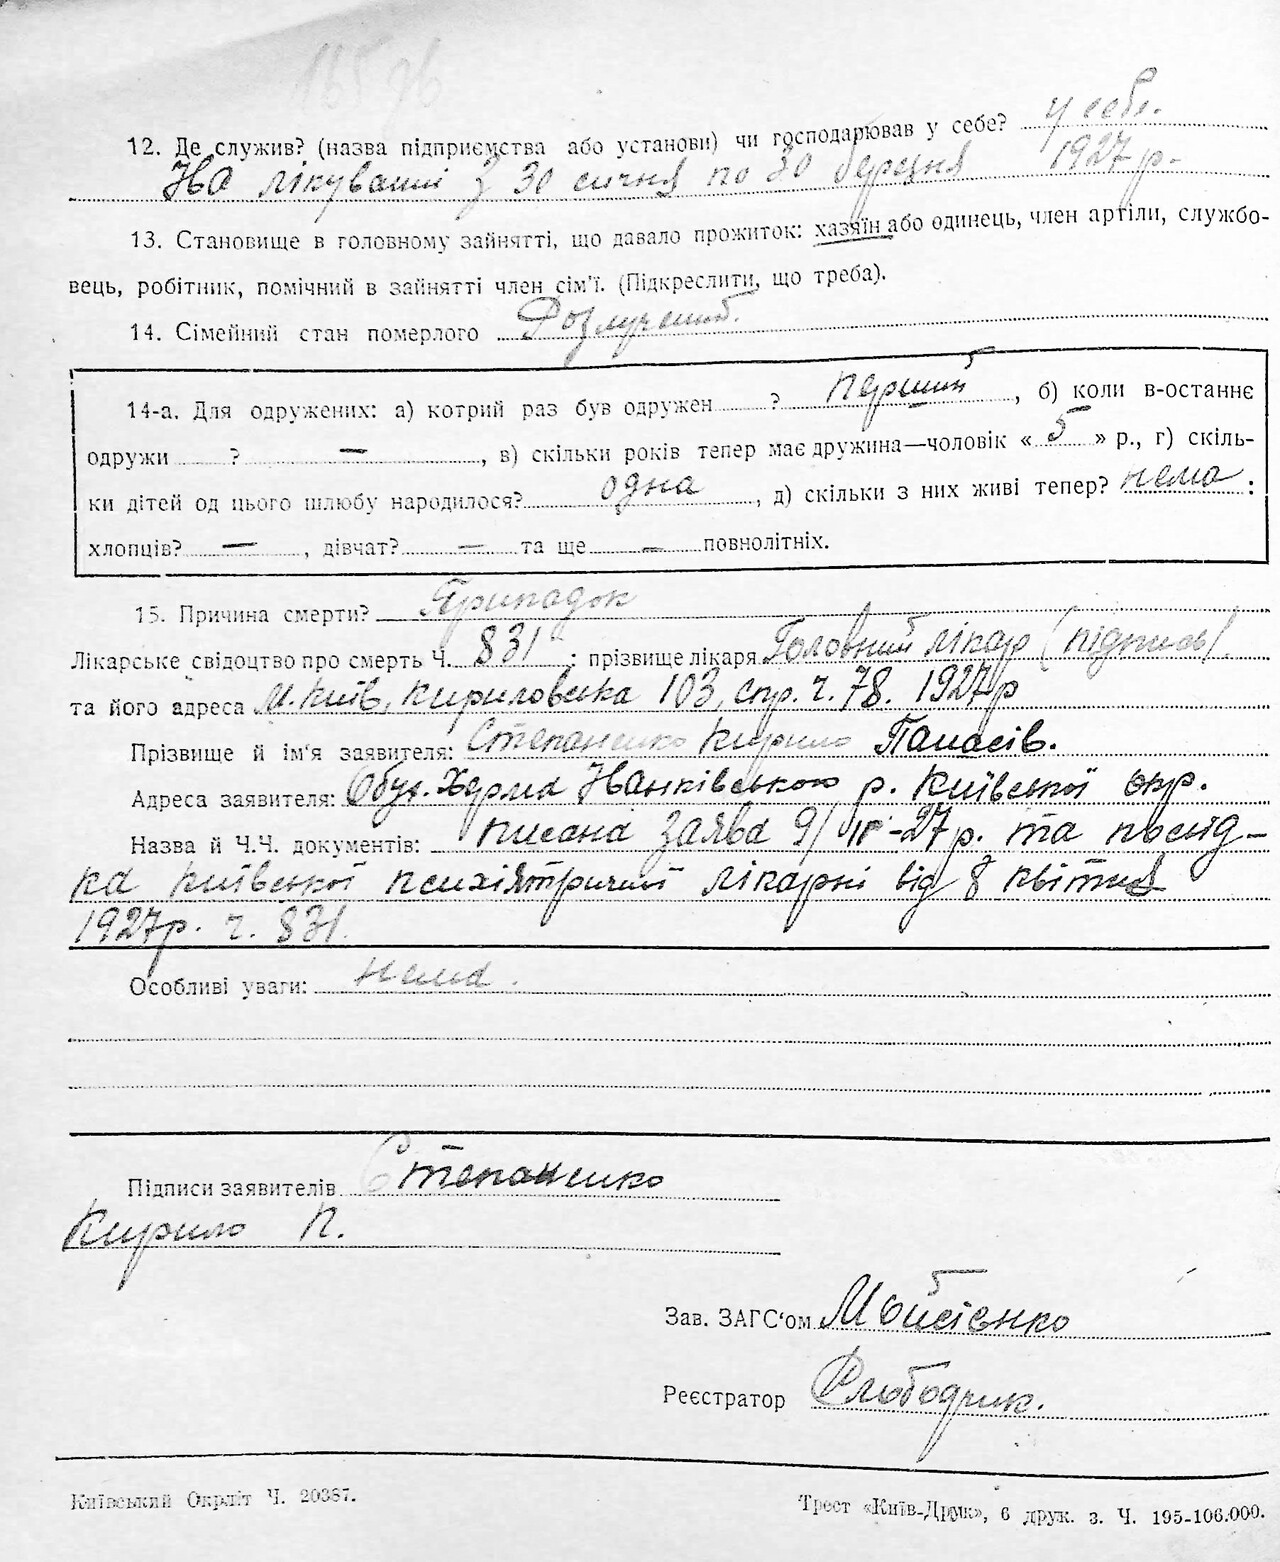 12. Де служив? (назва підприємства або установи) чи господарював у себе? у себе.
На лікуванні з 30 січня по 30 березня 1927 р.
13. Становище в головному зайнятті, що давало прожиток: хазяїн або одинець, член артіли, службо-
вець, робітник, помічний в зайнятті член сім'ї. (Підкреслити, що треба).
14. Сімейний стан померлого Розлучений.
14-а. Для одружених: а) котрий раз був одружен ? перший, б) коли в-останнє
одружи ? —, в) скільки років тепер має дружина—чоловік « 5 » р., г) скіль-
ки дітей од цього шлюбу народилося? одна, д) скільки з них живі тепер? нема :
хлопців? —, дівчат? — та ще — повнолітніх.
15. Причина смерти? Припадок
Лікарське свідоцтво про смерть Ч. 831 ; прізвище лікаря Головний лікар (підпись)
та його адреса м. Київ, Кириловська 103, спр. ч. 78. 1927 р
Прізвище й ім'я заявителя: Степаненко Кирило Панасів.
Адреса заявителя: Обух. Ферма Іванківського р. Київської окр.
Назва й Ч.Ч. документів: писана заява 9/IV-27 р. та посвід-
ка Київської психіятричної лікарні від 8 квітня
1927 р. ч. 831.
Особливі уваги: нема.
Підписи заявителів Степаненко
Кирило П.
Зав. ЗАГС'ом Мойсієнко
Реєстратор
Київський Окрліт Ч. 20387.
Трест «Київ-Друк», 6 друк. з. Ч. 195-106.000.